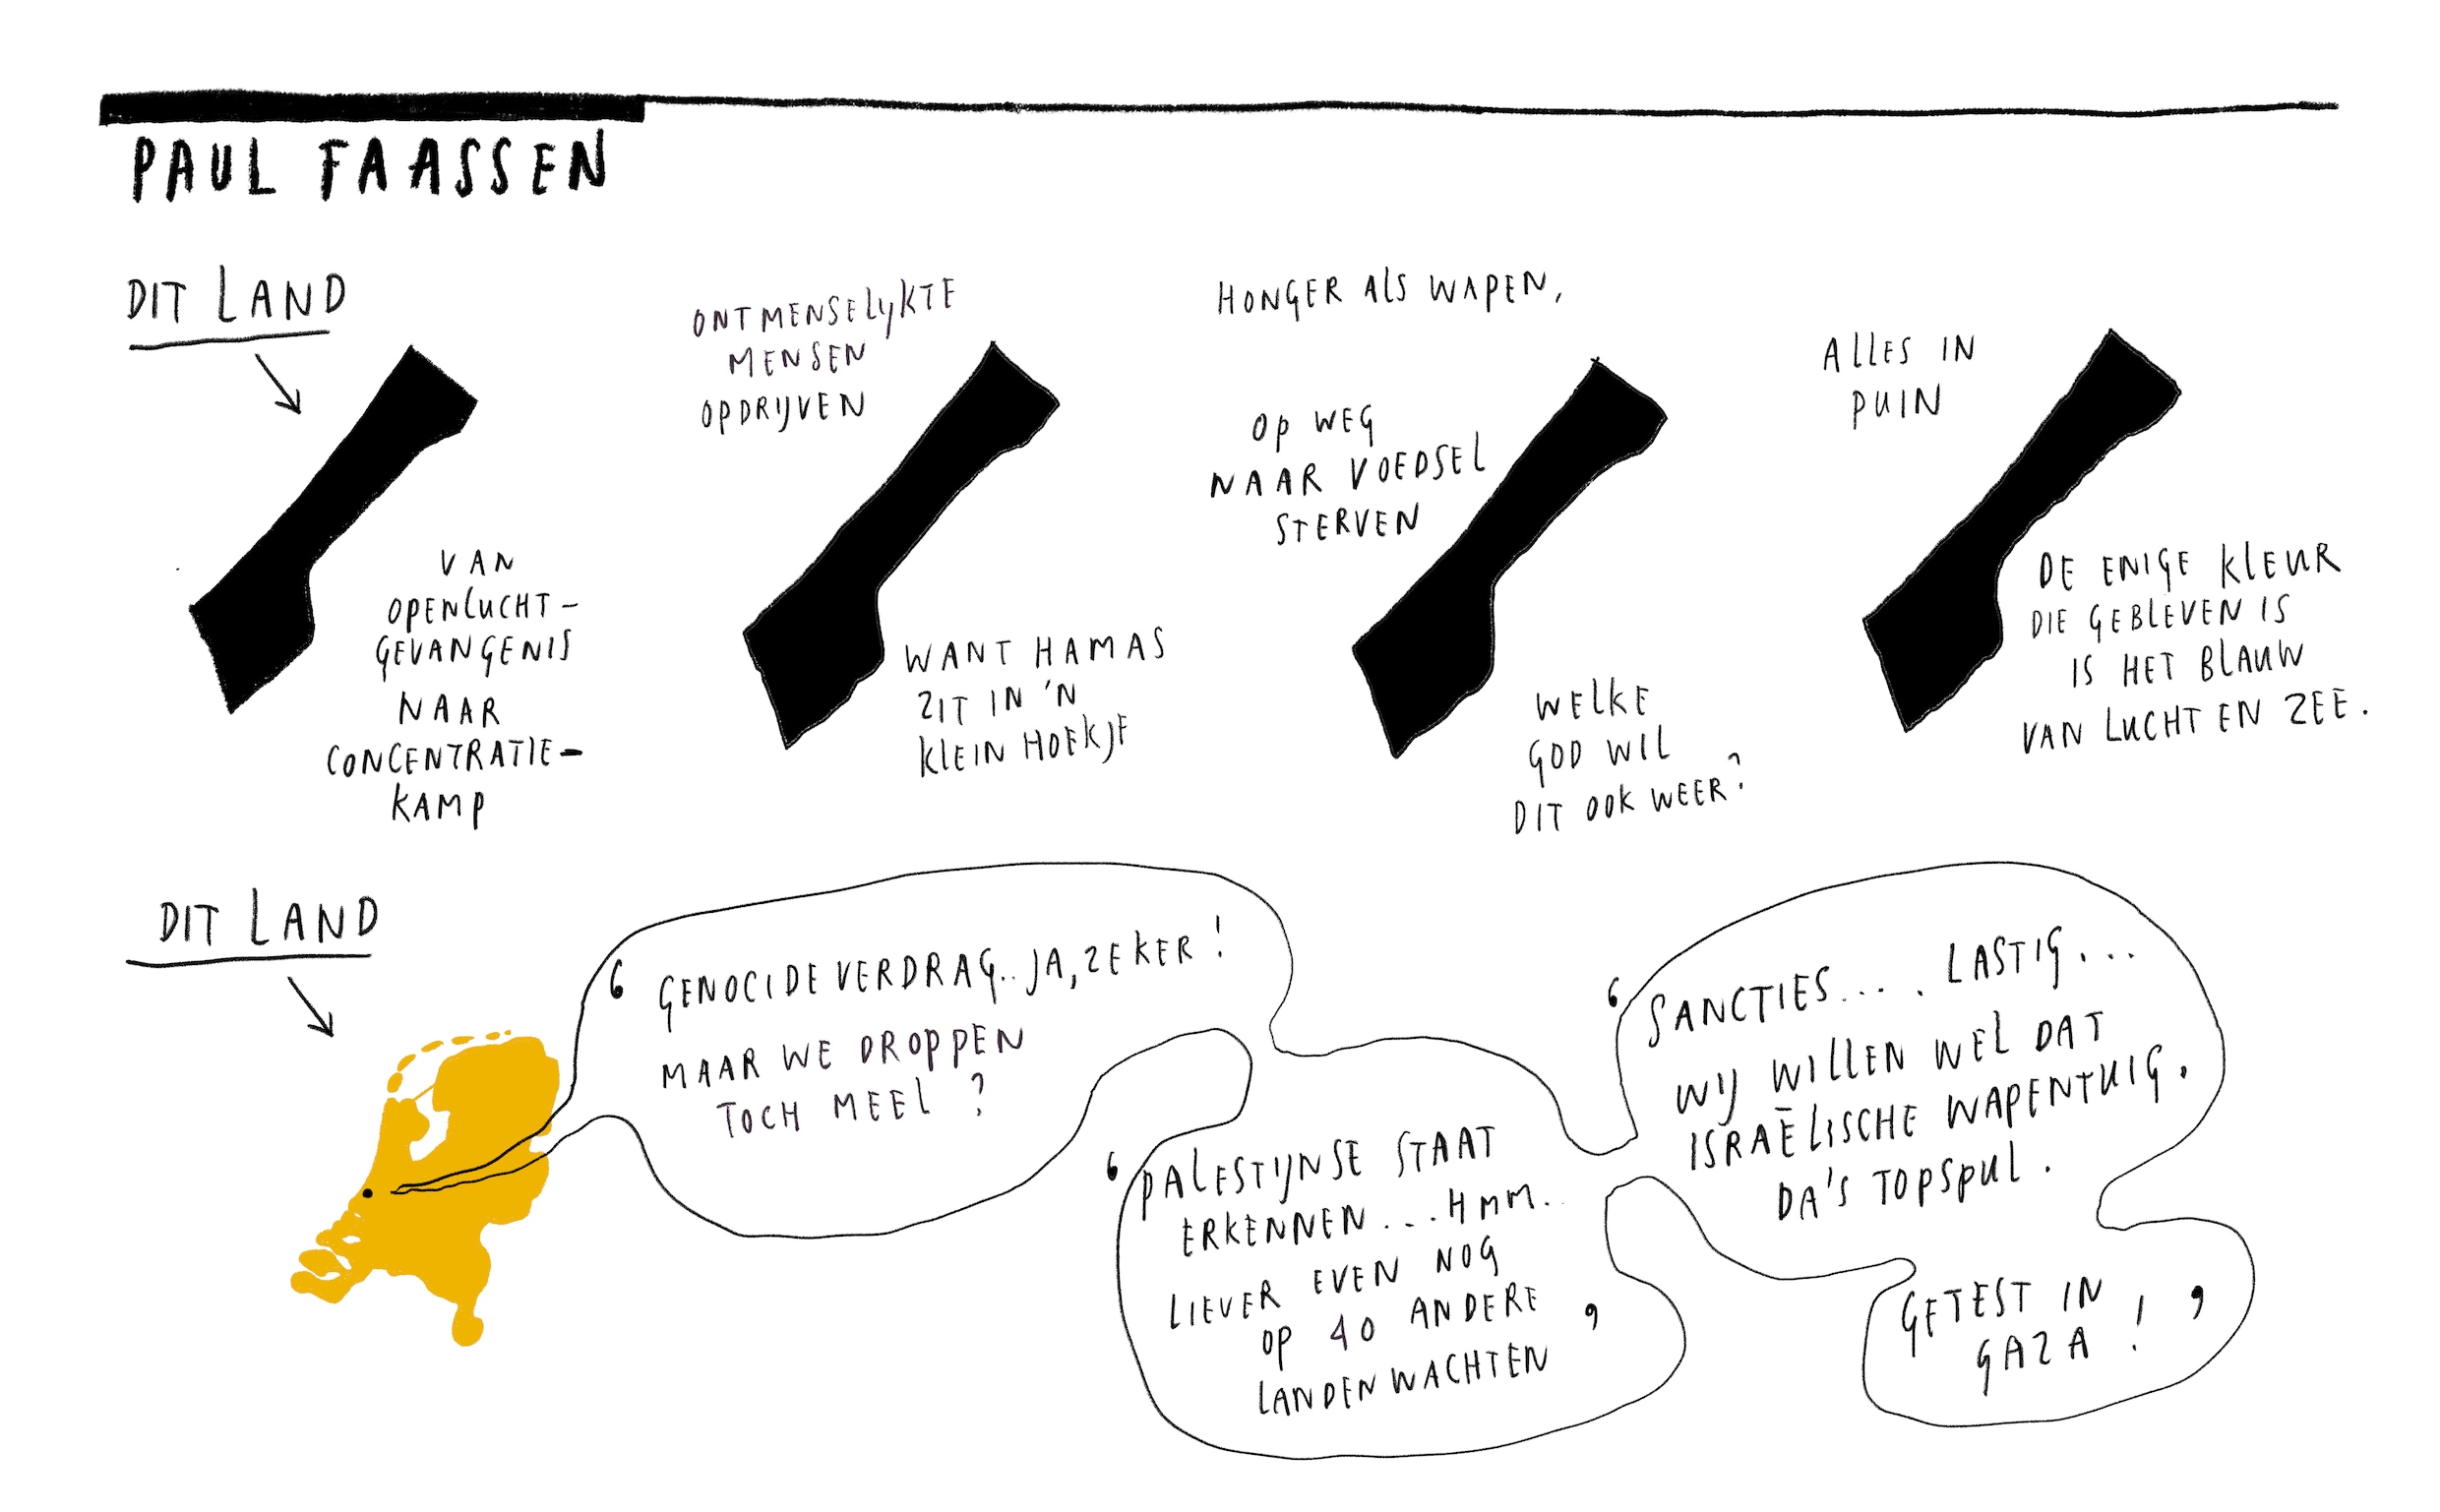 PAUL FAASSEN
DIT LAND
VAN
OPENLUCHT-
GEVANGENIS
NAAR
CONCENTRATIE-
KAMP
ONTMENSELYKTE
MENSEN
OPDRIJVEN
WANT HAMAS
ZIT IN 'N
KLEIN HOEKJE
HONGER ALS WAPEN,
OP WEG
NAAR VOEDSEL
STERVEN
WELKE
GOD WIL
DIT OOK WEER?
ALLES IN
PUIN
DE ENIGE KLEUR
DIE GEBLEVEN IS
IS HET BLAUW
VAN LUCHT EN ZEE.
DIT LAND
‘GENOCIDEVERDRAG.. JA, ZEKER!
MAAR WE DROPPEN
TOCH MEEL?
‘PALESTIJNSE STAAT
ERKENNEN...HMM..
LIEVER EVEN NOG
OP 40 ANDERE
LANDEN WACHTEN’
‘SANCTIES.... LASTIG...
WIJ WILLEN WEL DAT
ISRAËLISCHE WAPENTUIG.
DA'S TOPSPUL.
GETEST IN
GAZA!’